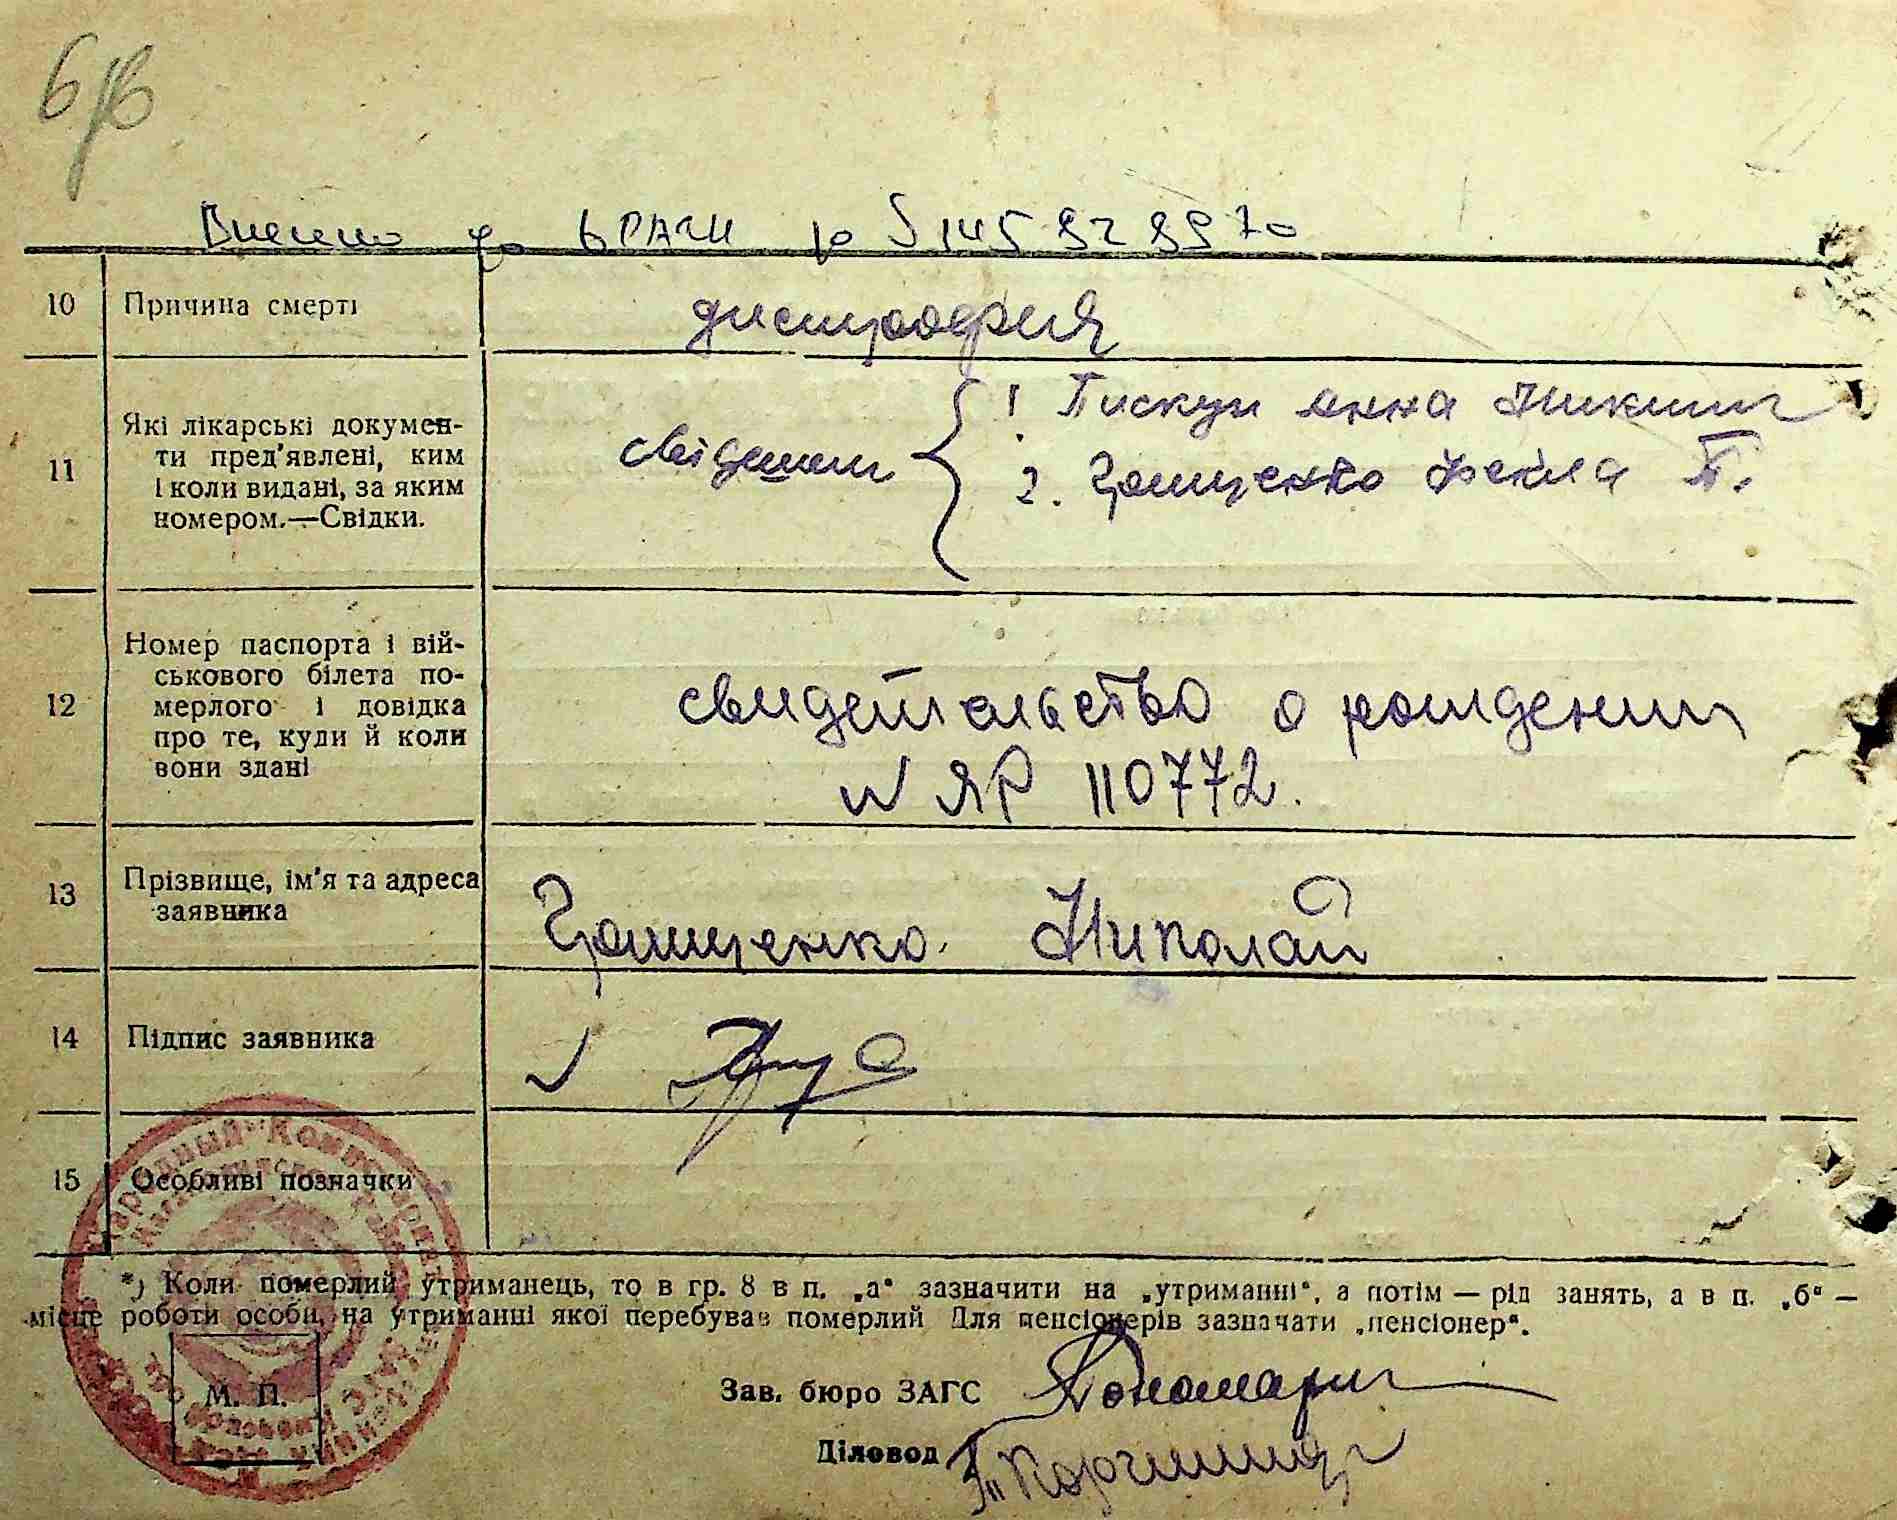 6
Внесено до ДРАЦС
10 Причина смерті дистрофия
11 Які лікарські докумен-
ти пред'явлені, ким
і коли видані, за яким
номером.—Свідки.
свідетели
1 Пискун Анна Никит
2. Грищенко Фекла П.
12 Номер паспорта і вій-
ськового білета по-
мерлого і довідка
про те, куди й коли
вони здані
свидетельство о рождении
N ЯР 110772.
13 Прізвище, ім'я та адреса
заявника
Грищенко Николай
14 Підпис заявника
15 Особливі позначки
*) Коли померлий утриманець, то в гр. 8 в п. „а“ зазначити на „утриманні“, а потім — рід занять, а в п. „б“ —
місце роботи особи, на утриманні якої перебував померлий Для пенсіонерів зазначати „пенсіонер“.
М. П.
Зав. бюро ЗАГС
Діловод